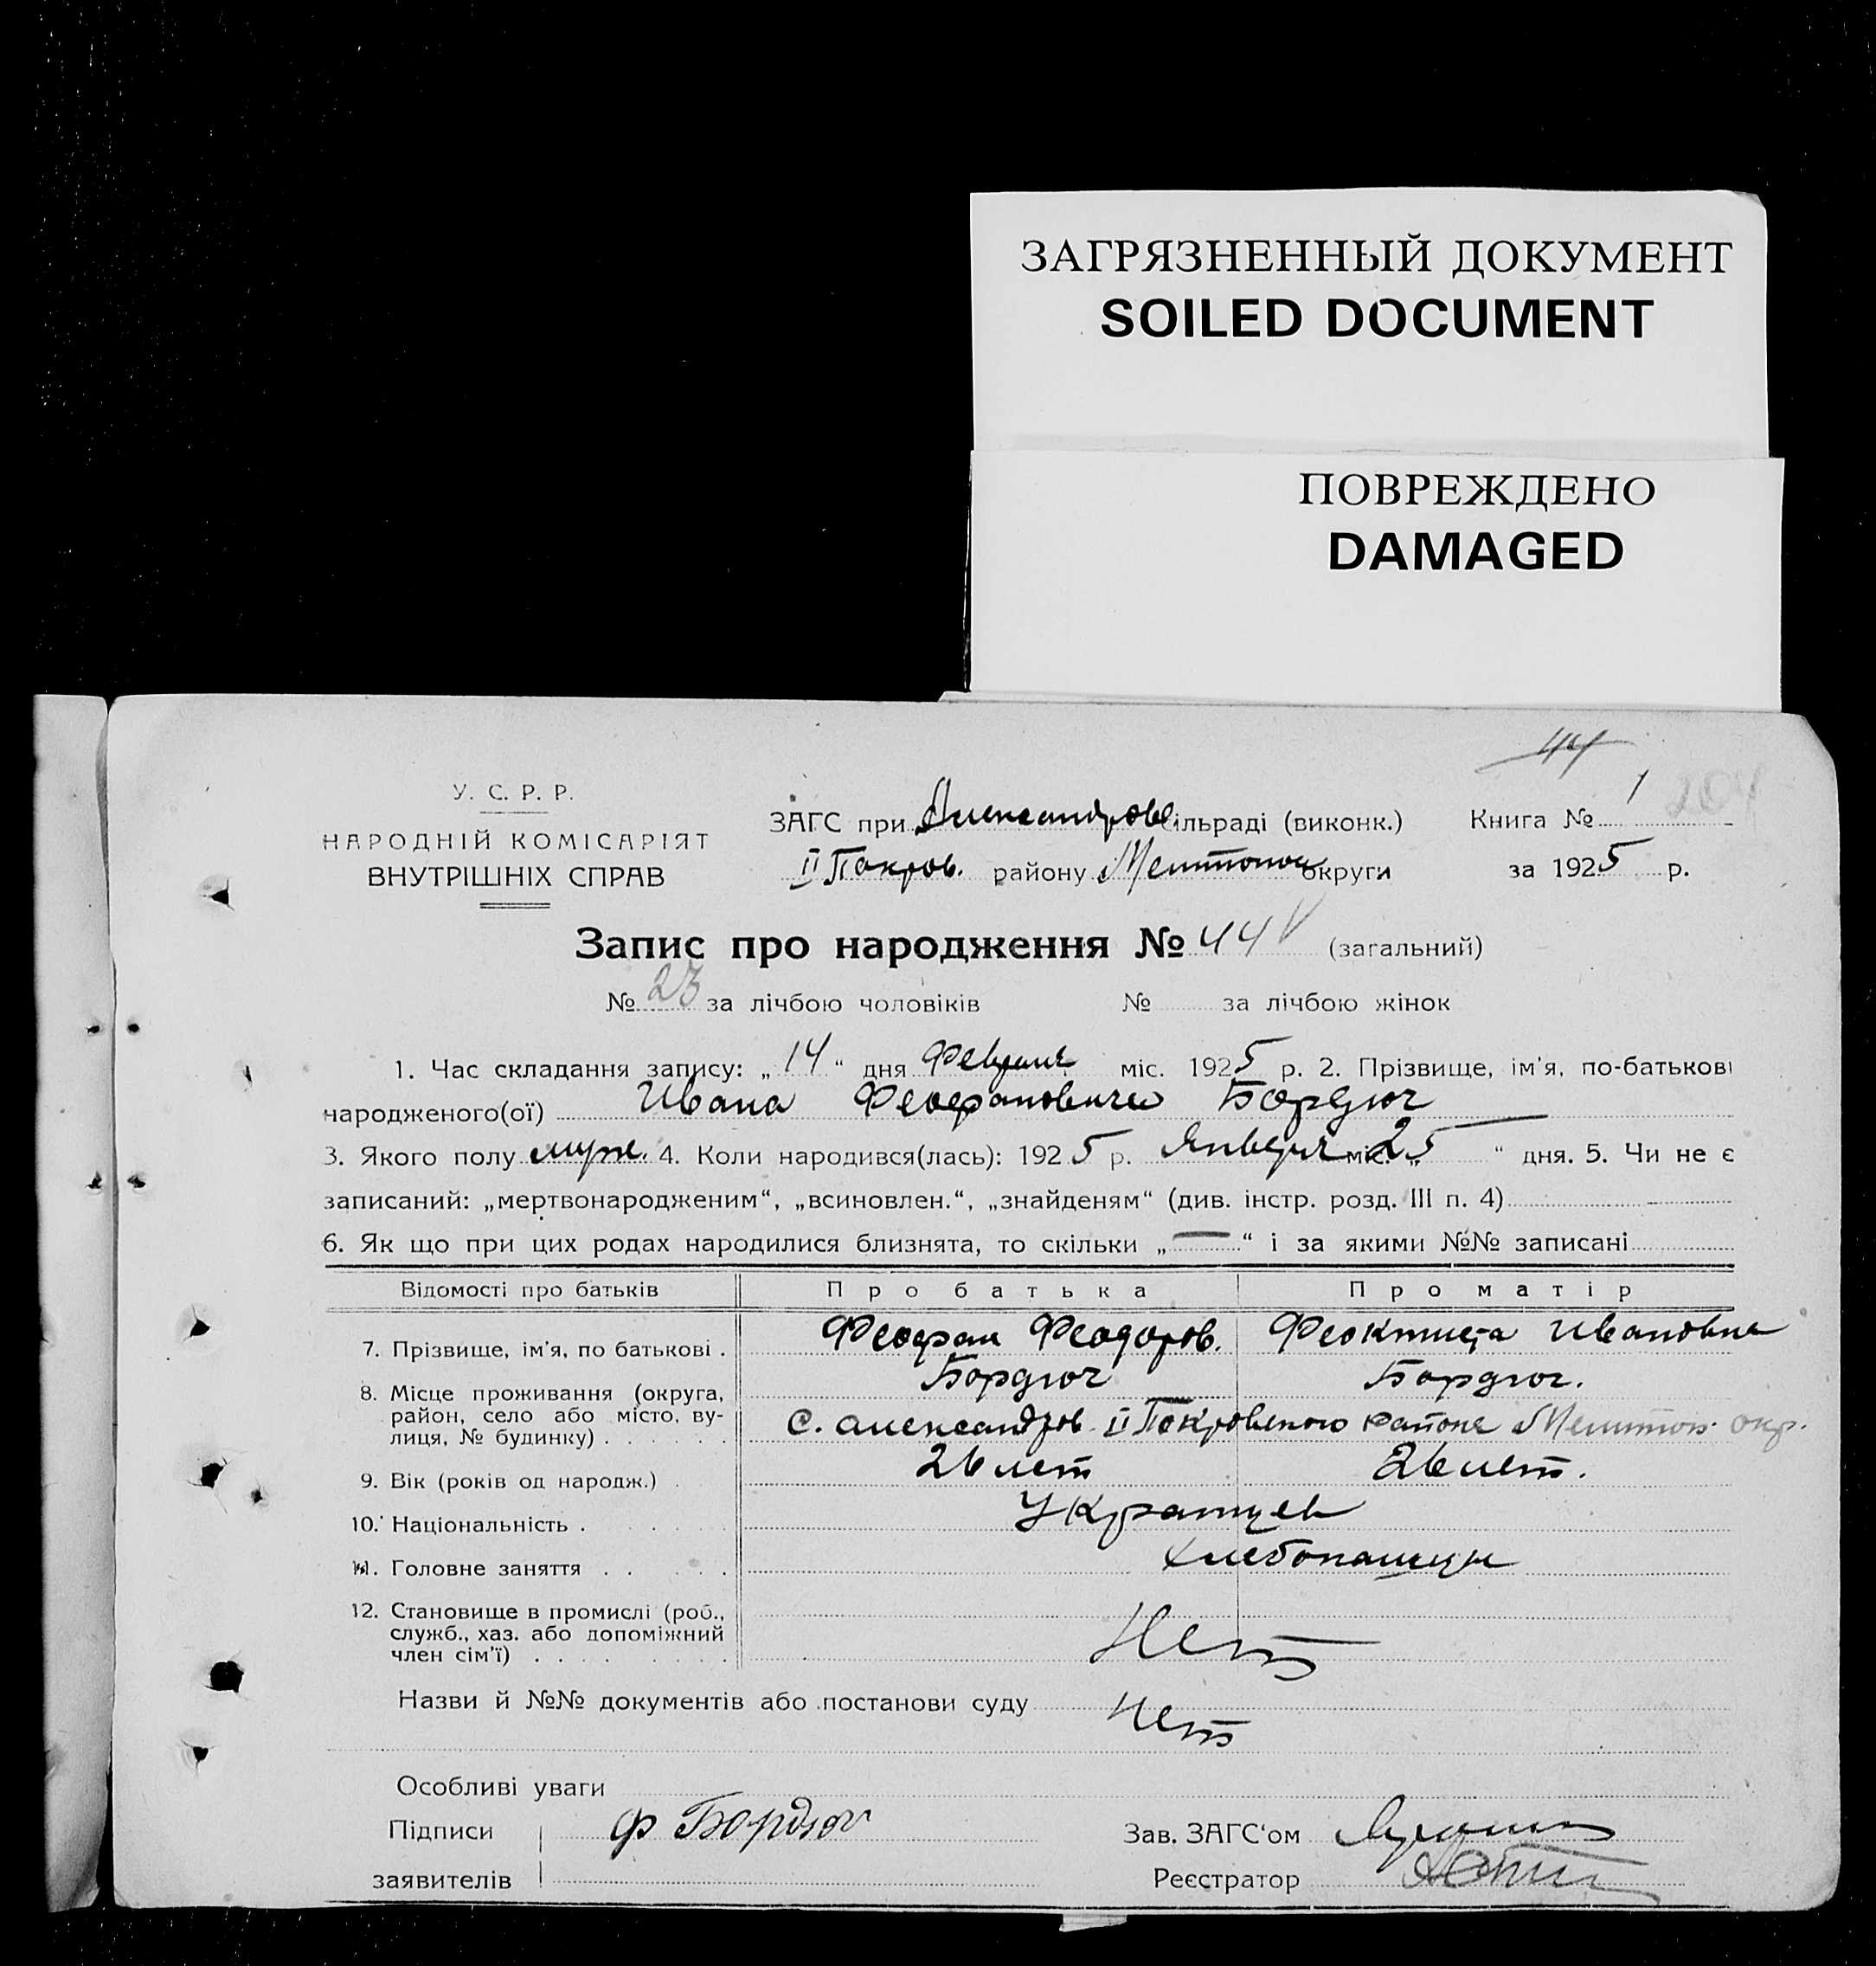 ЗАГРЯЗНЕННЫЙ ДОКУМЕНТ
SOILED DOCUMENT
ПОВРЕЖДЕНО
DAMAGED
44
У. С. Р. Р.
НАРОДНІЙ КОМІСАРІЯТ
ВНУТРІШНІХ СПРАВ
ЗАГС при Александров сільраді (виконк.) Книга № 1 204
II Покров. району Мелитопол округи за 1925 р.
Запис про народження № 44 (загальний)
№ 23 за лічбою чоловіків № за лічбою жінок
1. Час складання запису: „14“ дня Февраля міс. 1925 р. 2. Прізвище, ім'я, по-батькові
народженого(ої) Ивана Феофановича Бордюг
3. Якого полу муж. 4. Коли народився(лась): 1925 р. Января міс. „25“ дня. 5. Чи не є
записаний: „мертвонародженим“, „всиновлен.“, „знайденям“ (див. інстр. розд. III п. 4)
6. Як що при цих родах народилися близнята, то скільки „—“ і за якими №№ записані
Відомості про батьків Про батька Про матір
7. Прізвище, ім'я, по батькові . Феофан Феодоров. Феоктиста Ивановна
Бордюг Бордюг.
8. Місце проживання (округа,
район, село або місто, ву-
лиця, № будинку) . . . . . . с. Александров II Покровского района Мелитоп. окр.
9. Вік (років од народж.) . 26 лет 26 лет.
10. Національність . . . . . Украинцы
11. Головне заняття . . . . . Хлебопашцы
12. Становище в промислі (роб.,
служб., хаз. або допоміжний
член сім'ї) . . . . . . . . Нет
Назви й №№ документів або постанови суду Нет
Особливі уваги
Підписи Ф Бордюг Зав. ЗАГС'ом
заявителів Реєстратор